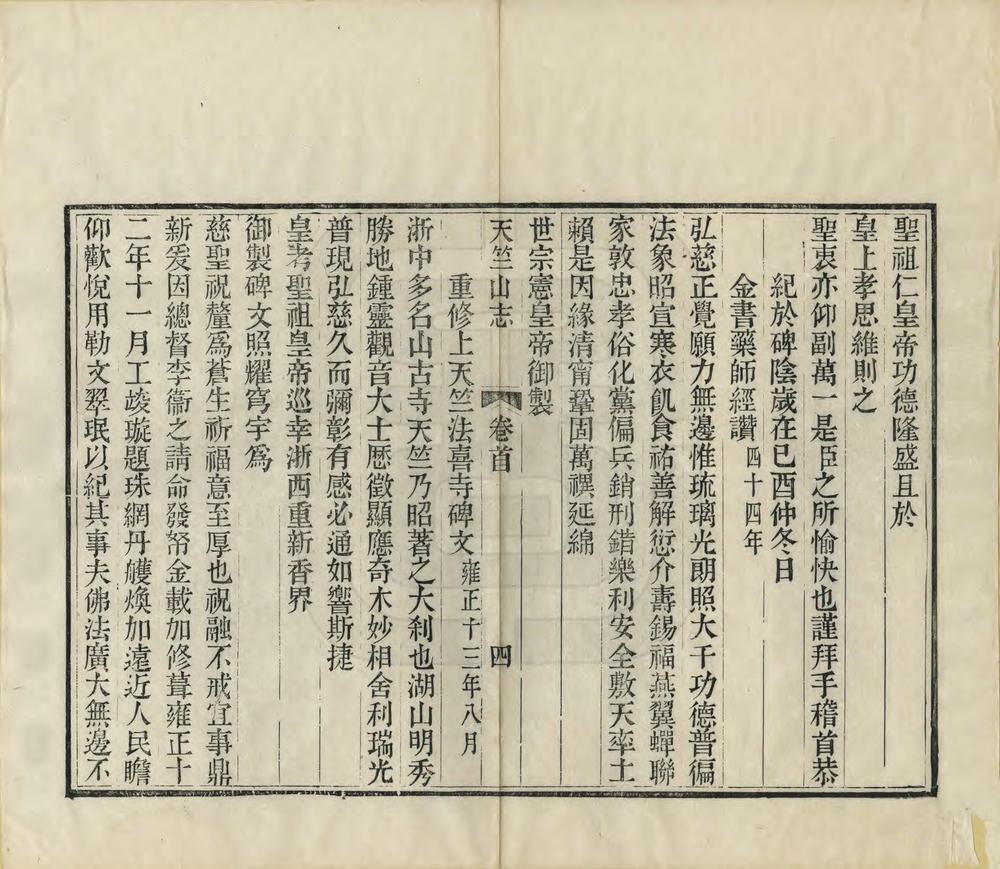 聖祖仁皇帝功德隆盛且於
皇上孝思維則之
聖衷亦仰副萬一是臣之所愉快也謹拜手稽首恭
紀於碑陰歲在己酉仲冬日
金書藥師經讚四十四年
弘慈正覺願力無邊惟琉璃光朗照大千功德普徧
法象昭宣寒衣飢食祐善解愆介壽錫福燕翼蟬聯
家敦忠孝俗化黨偏兵銷刑錯樂利安全敷天率土
賴是因緣清甯鞏固萬禩延綿
世宗憲皇帝御製
天竺山志 卷首 四
重修上天竺法喜寺碑文雍正十三年八月
浙中多名山古寺天竺乃昭著之大刹也湖山明秀
勝地鍾靈觀音大士歷徵顯應奇木妙相舍利瑞光
普現弘慈久而彌彰有感必通如響斯捷
皇考聖祖皇帝巡幸浙西重新香界
御製碑文照耀寓宇爲
慈聖祝釐爲蒼生祈福意至厚也祝融不戒宜事鼎
新爰因總督李衞之請命發帑金載加修葺雍正十
二年十一月工竣璇題珠網丹艧煥加遠近人民瞻
仰歡悅用勒文翠珉以紀其事夫佛法廣大無邊不